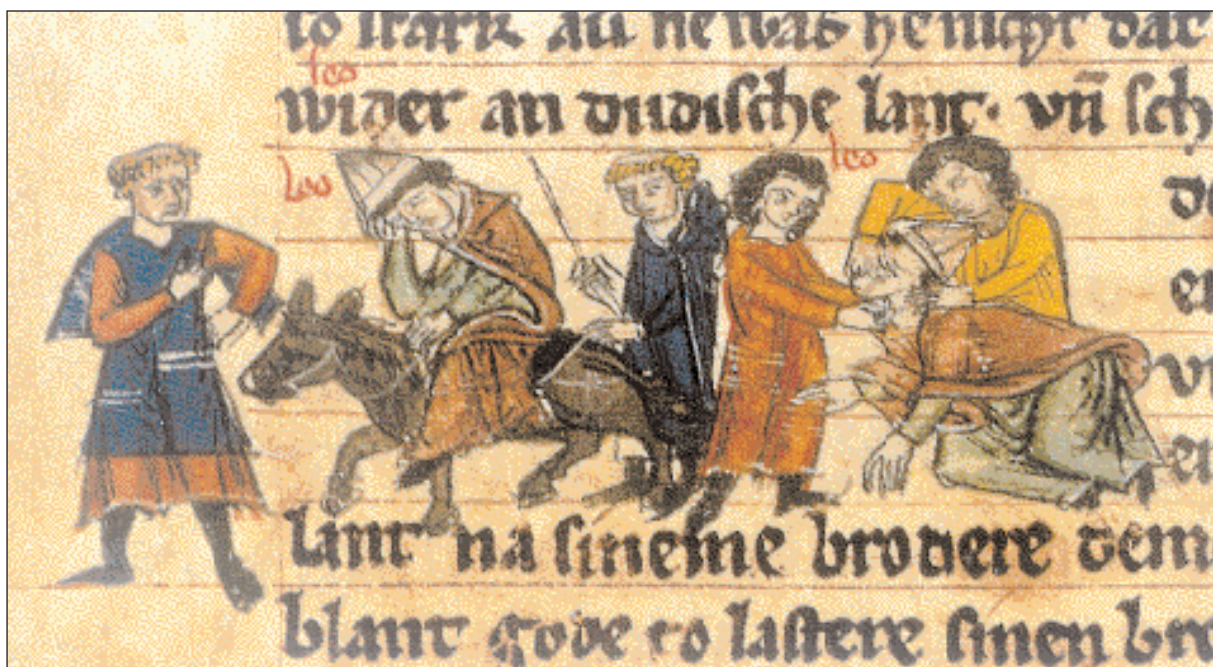 to ſtark an ne was he nicht dat
leo
wider an dudiſche lant· vn̄ ſch
leo
leo
lant na ſineme brodere dem
blant gode to laſtere ſinen bro